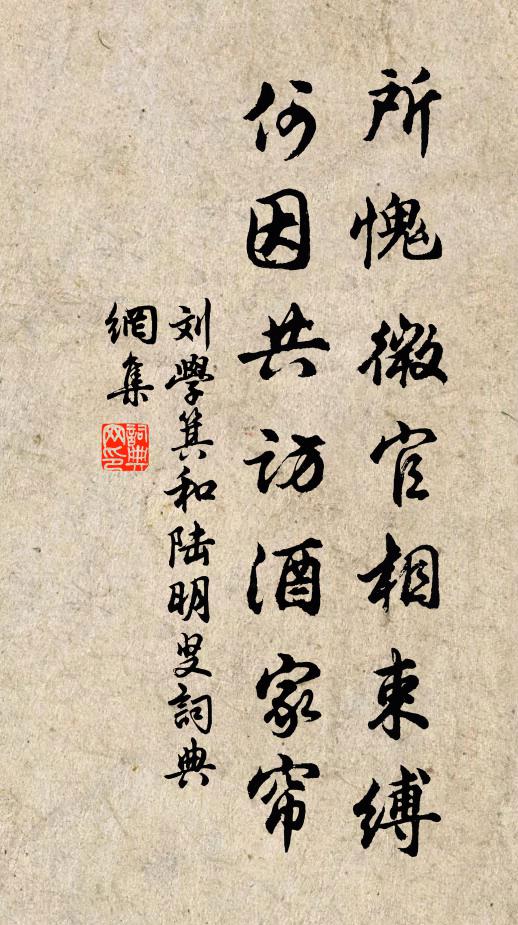 所愧微官相束缚
何因共访酒家帘
刘學箕和陆明叟詞典
網集
詞典网印